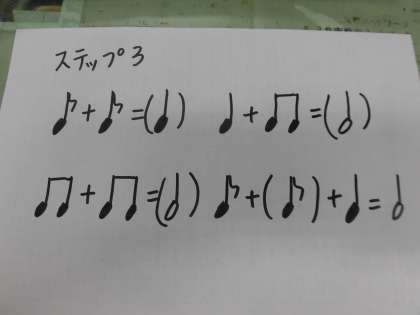 ステップ3
♪+♪=(♩) ♩+♫=(𝅗𝅥)
♫+♫=(𝅗𝅥) ♪+(♪)+♩=𝅗𝅥